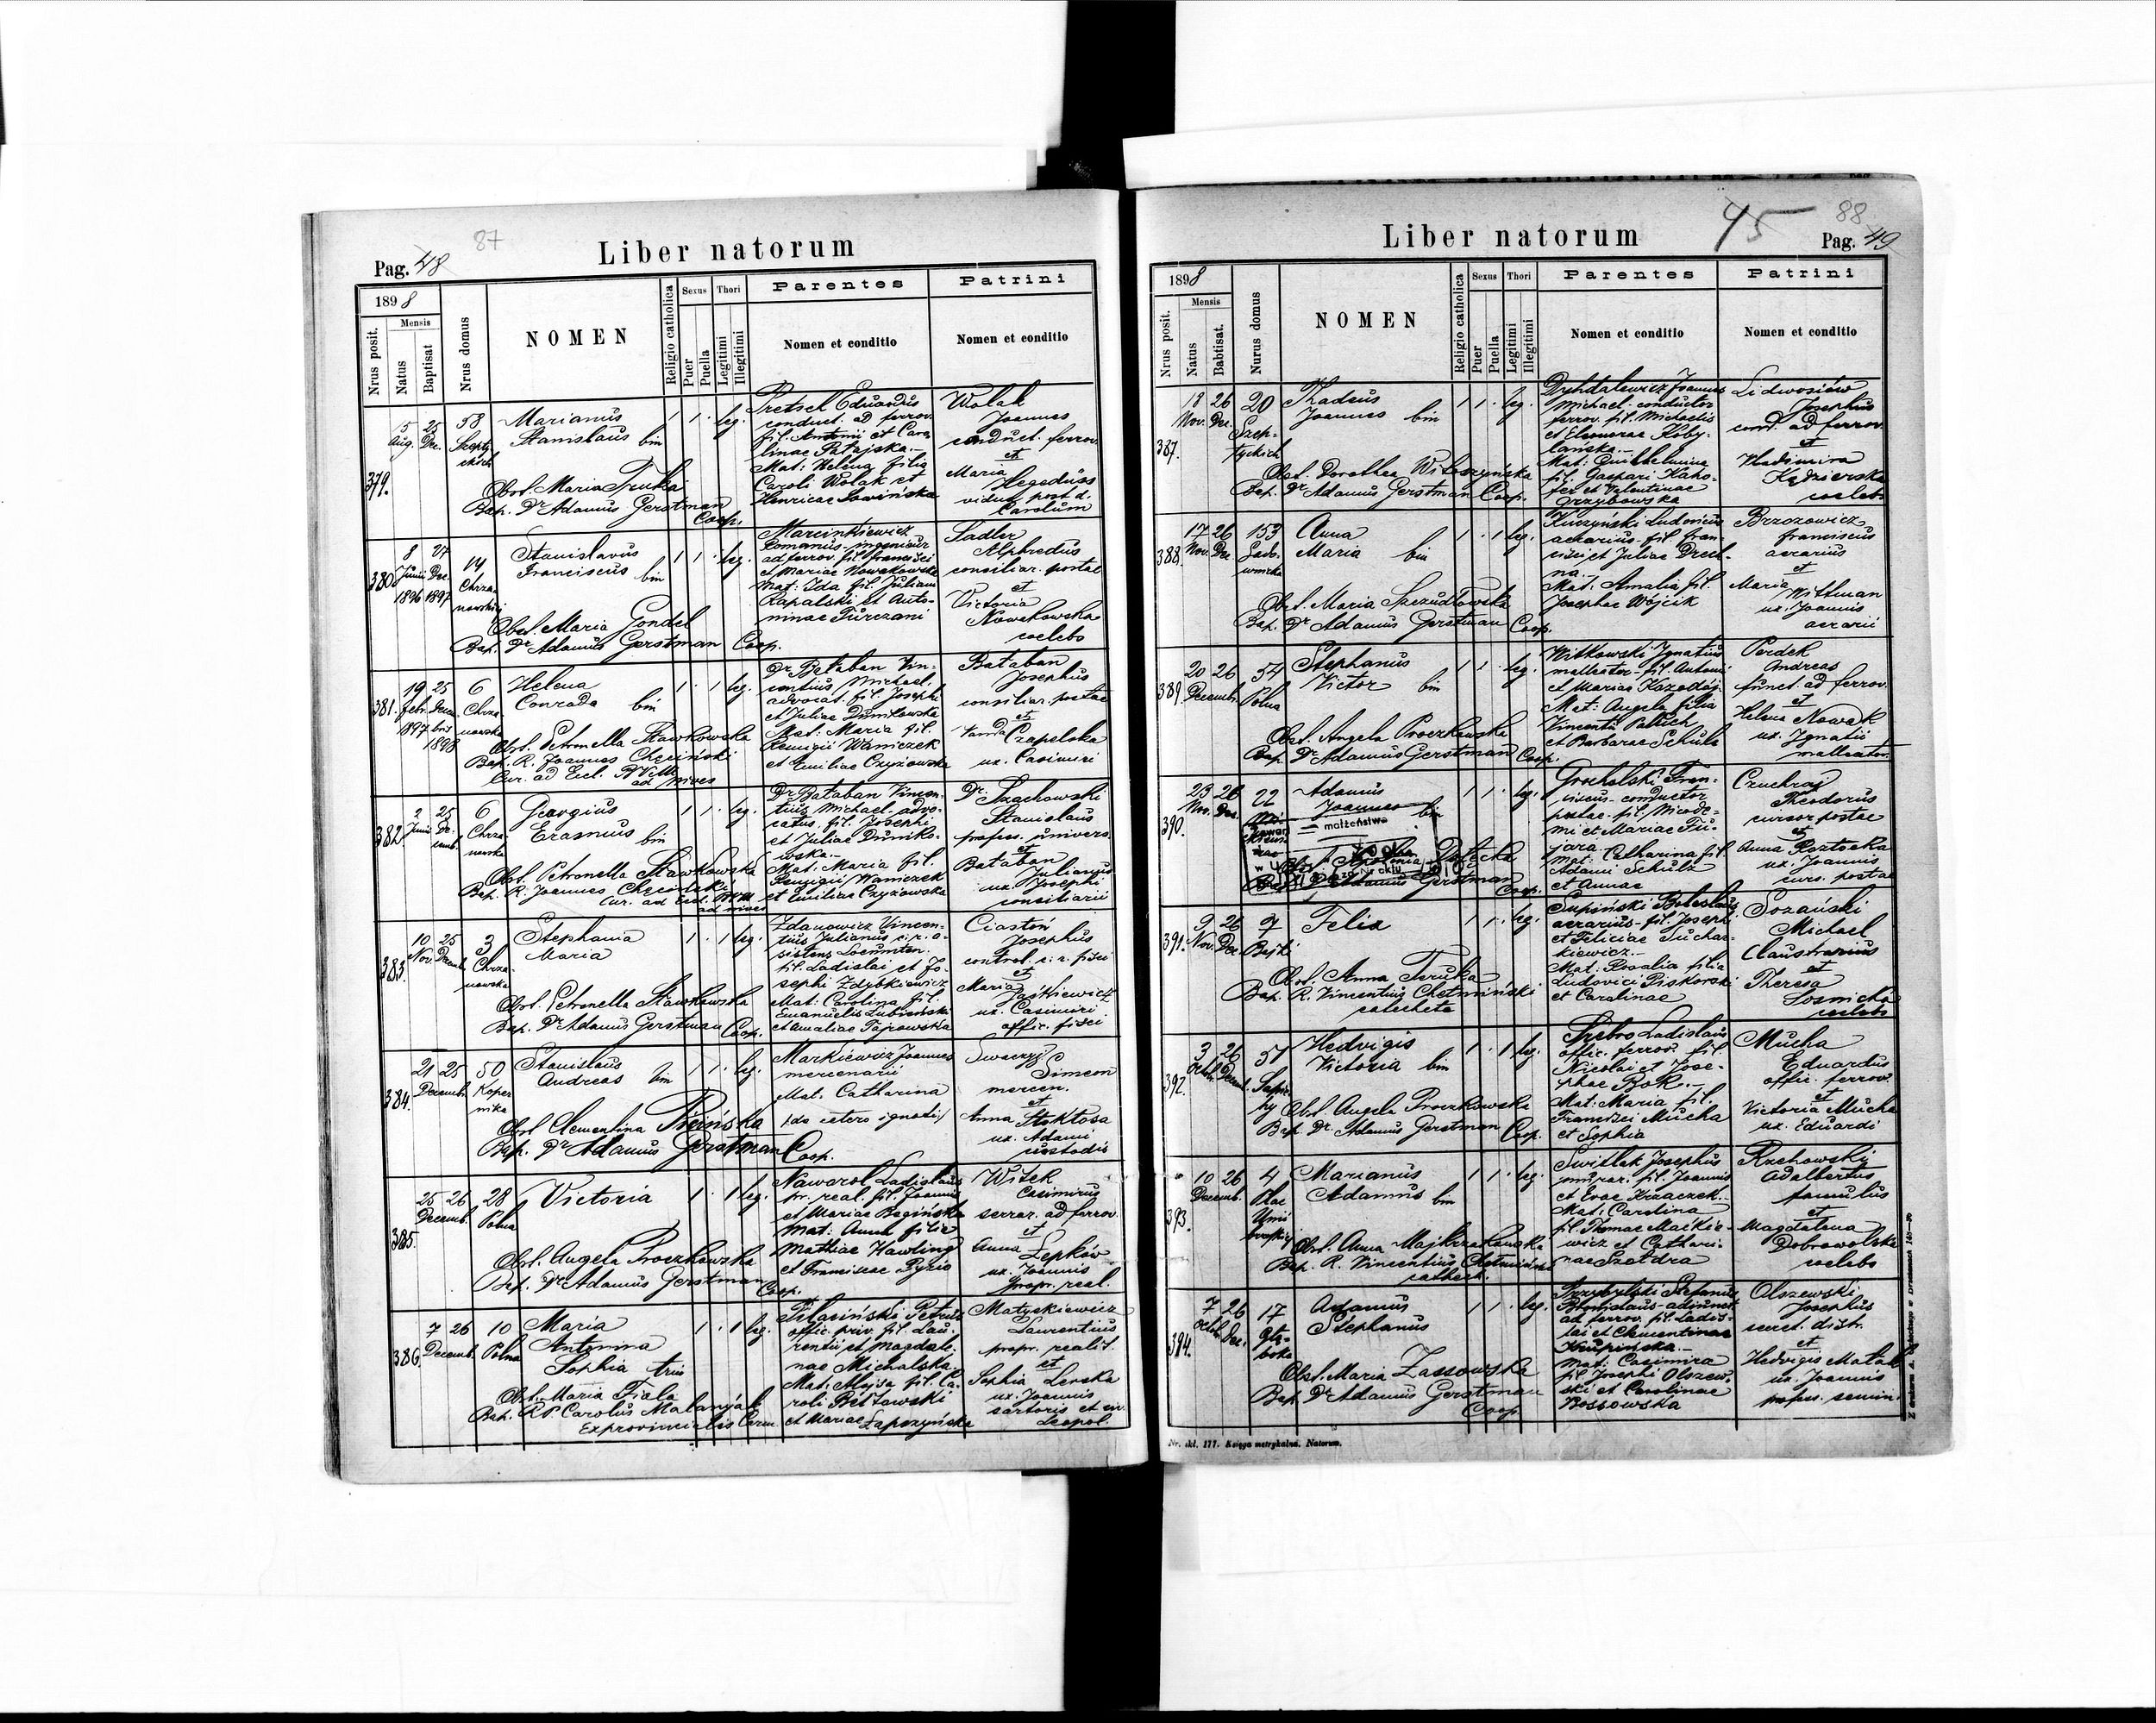 87
Liber natorum
Pag. 48
1898
Nrus posit.
Mensis
Natus
Baptisat
Nrus domus
NOMEN
Religio catholica
Sexus
Puer
Puella
Thori
Legitimi
Illegitimi
Parentes
Nomen et conditio
Patrini
Nomen et conditio
379.
5 Aug.
25 Dec.
58
Marianus
Stanislaus bin
1 1 · leg.
Obst. Maria
Bap. Dr Adamus Gerstman
Coop.
Pretsel Eduardus
conduct. ad ferrov.
fil. Antonii et Caro
linae
Mat: Helena filia
Caroli Wolak et
Henricae
Wolak
Joannes
conduct. ferrov.
et
Maria
Hegedüss
vidua post d.
Carolum
380.
8 Junii 1896
27 Dec. 1897
14
Chrza
nowskiej
Stanislavus
Franciscus bin
1 1 · leg.
Obst. Maria Gondel
Bap. Dr Adamus Gerstman Coop.
Marcinkiewicz
Romanus-ingenieur
ad ferrov. fil. Francisci
et Mariae Nowakowska
Mat: Ida fil. Juliani
Rapalski et Anto-
ninae
Sadler
Alphredus
consiliar. postae
et
Victoria
Nowakowska
coelebs
381.
19 febr. 1897
25 Decembris 1898
6
Chrza
nowska
Helena
Conrada bin
1 · 1 leg.
Obst. Petronella Stawkowska
Bap. R. Joannes Chęciński
Cur. ad Eccl.
ad Nives
Dr Bałaban Vin-
centius Michael.
advocat. fil. Josephi
et Juliae Dunikowska
Mat: Maria fil.
Remigii Waniczek
et Emiliae Czyżowska
Bałaban
Josephus
consiliar. postae
et
Vanda Czapelska
ux. Casimiri
382.
2 Junii
25 De-
cemb.
6
Chrza
nowska
Georgius
Erasmus bin
1 1 · leg.
Obst. Petronella Stawkowska
Bap. R. Joannes Chęciński
Cur. ad Eccl. BVM
ad nives
Dr Bałaban Vincen-
tius Michael advo-
catus fil. Josephi
et Juliae Duniko-
wska.-
Mat: Maria fil.
Remigii Waniczek
et Emiliae Czyżowska
Dr. Szachowski
Stanislaus
profess. univers.
et
Bałaban
Julianna
ux. Josephi
consiliarii
383.
10 Nov.
25 Decemb.
3
Chrza-
nowska
Stephania
Maria
1 · 1 leg.
Obst. Petronella Stawkowska
Bap. Dr Adamus Gerstman Coop.
Zdanowicz Vincen-
tius Julianus c. r. a-
sistens
fil. Ladislai et Jo-
sephi Zdybkiewicz
Mat: Carolina fil.
Emanuelis Lubieński
et Amaliae
Ciastoń
Josephus
control. c. r. fisci
et
Maria
ux. Casimiri
offic. fisci
384.
21 25
Decemb.
50
Koper
nika
Stanislaus
Andreas bin
1 1 · leg.
Obst. Clementina
Bap. Dr Adamus Gerstman Coop.
Markiewicz Joannes
mercenarii
Mat: Catharina
/de cetero ignoti/
Simeon
mercen.
et
Anna Stokłosa
ux. Adami
custodis
385.
25 26
Decemb.
28
Polna
Victoria
1 · 1 leg.
Obst. Angela Proczkowska
Bap. Dr Adamus Gerstman
Coop.
Nawarol Ladislaus
pr. real. fil. Joannis
et Mariae Bagińska
Mat: Anna filia
Mathiae Hawling
et Franciscae Pyzio
Witek
Casimirus
serrar. ad ferrov.
et
Anna Lepków
ux. Joannis
propr. real.
386.
7 26
Decemb.
10
Polna
Maria
Antonina
Sophia trin
1 · 1 leg.
Obst. Maria Fiala
Bap. RP Carolus
Exprovincialis Carm.
Filasiński Petrus
offic. priv. fil. Lau-
rentii et Magdale-
nae Michalska.
Mat: Aloisa fil. Ca-
roli
et Mariae Łapczyńska
Matyskiewicz
Laurentius
propr. realit.
et
Sophia Lenska
ux. Joannis
sartoris et civ.
Leopol.
Liber natorum
45
88
Pag. 49
1898
Nrus posit.
Mensis
Natus
Babtisat.
Nurus domus
NOMEN
Religio catholica
Sexus
Puer
Puella
Thori
Legitimi
Illegitimi
Parentes
Nomen et conditio
Patrini
Nomen et conditio
387.
18 Nov.
26 Dec.
20
Szep-
tyckich
Thadeus
Joannes bin
1 1 · leg.
Obst. Dorothea
Bap. Dr Adamus Gerstman Coop.
Joannes
Michael-conductor
ferrov. fil. Michaelis
et Eleonorae Koby-
lańska.-
Mat:
fil. Gaspari
et Valentinae
Grzybowska
Josephus
cond. ad ferrov.
et
Vladimira
Kędzierska
coelebs
388.
17 Nov.
26 Dec
153
Anna
Maria bin
1 · 1 leg.
Obst. Maria Szczudłowska
Bap. Dr Adamus Gerstman Coop.
Kuczyński Ludovicus
aerarius-fil. Fran-
cisci et Juliae
na.-
Mat: Amalia fil.
Josephae Wójcik
Brzozowicz
Franciscus
aerarius
et
Maria
Wittman
ux. Joannis
aerarii
389.
20 26
Decemb.
54
Polna
Stephanus
Victor bin
1 1 · leg.
Obst. Angela Proczkowska
Bap. Dr Adamus Gerstman Coop.
Witkowski Ignatius
malleator-fil. Antonii
et Mariae
Mat: Angela filia
Vincentii
et Barbarae Schulz
Perdek
Andreas
funct. ad ferrov.
et
Helena Nowak
ux. Ignatii
malleator.
390.
23 Nov.
26 Dec.
22
Adamus
Joannes bin
małżeństwo
1 1 · leg.
Obst. Apolonia
Bap. Dr Adamus Gerstman
Coop.
Grocholski Fran-
ciscus-conductor
postae-fil. Nicode-
mi et Mariae Fu-
jara
Mat: Catharina fil.
Adami Schultz
et Annae
Czuchraj
Theodorus
cursor postae
et
Anna
ux. Joannis
curs. postae
391.
9 Nov.
26 Dec
7
Felix
1 1 · leg.
Obst. Anna
Bap. R. Vincentius Chełmiński
catecheta
Supiński Boleslaus
aerarius-fil. Josephi
et Feliciae Suchar-
kiewicz.-
Mat: Rosalia filia
Ludovici Piskorski
et Carolinae
Sozański
Michael
Claustrarius
et
Theresa
coelebs
392.
3 Octob.
26 Decemb.
51
Sapie
hy
Hedvigis
Victoria bin
1 · 1 leg.
Obst. Angela Proczkowska
Bap. Dr. Adamus Gerstman Coop.
Ladislaus
offic. ferrov. fil.
Nicolai et Jose-
phae Bok.-
Mat: Maria fil.
Francisci Mucha
et Sophia
Mucha
Eduardus
offic. ferrov.
et
Victoria Mucha
ux. Eduardi
393.
10 26
Decemb.
4
Plac
Marianus
Adamus bin
1 1 · leg.
Obst. Anna
Bap. R. Vincentius Chełmiński
catech.
Świtlak Josephus
murar. fil. Joannis
et Evae Krzaczek.-
Mat: Carolina
fil. Thomae Maćkie-
wicz et Cathari-
nae
Rzehowski
Adalbertus
famulus
et
Magdalena
Dobrowolska
coelebs
394.
7 Octob.
26 Dec.
17
Głę-
boka
Adamus
Stephanus
1 1 · leg.
Obst. Maria Zassowska
Bap. Dr Adamus Gerstman
Coop.
Przybylski Stefanus
Bronislaus-adjunct
ad ferrov. fil. Ladis-
lai et Clementinae
Krupińska.-
Mat: Casimira
fil. Josephi Olszew-
ski et Carolinae
Bossowska
Olszewski
Josephus
secret. distr.
et
Hedvigis
ux. Joannis
profess. semin.
Nr. skł. 177. Księga metrykalna. Natorum.